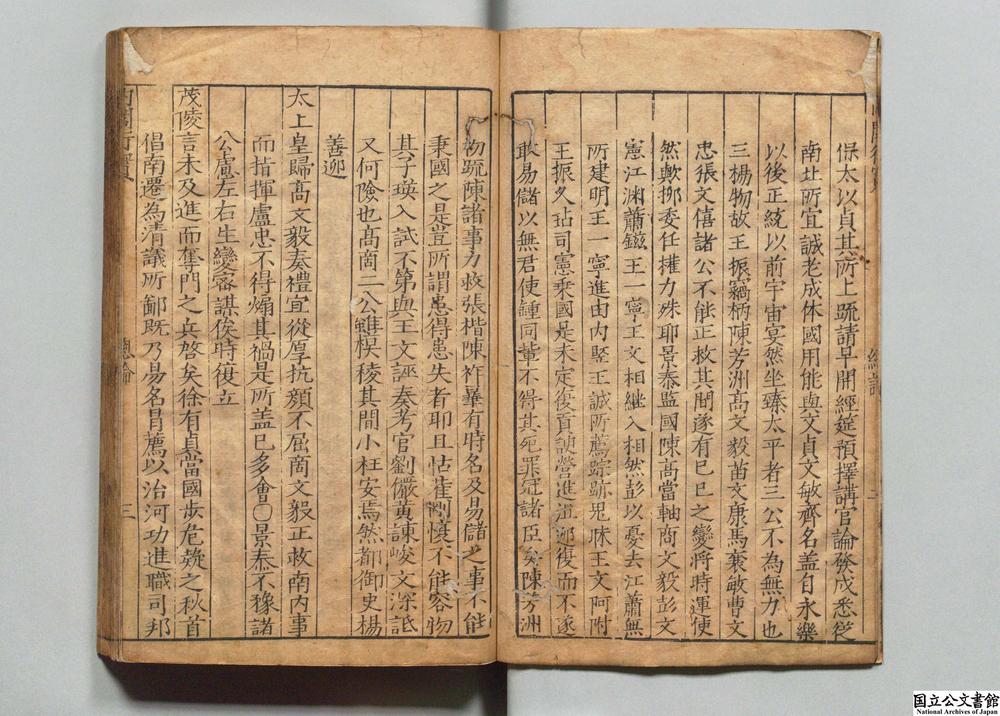 保太以貞其所上疏請早開經筵預擇講官論發戍悉從
南北所宜誠老成体國用能與文貞文敏齊名盖自永樂
以後正統以前宇宙宴然坐臻太平者三公不為無力也
三楊物故王振竊柄陳芳洲高文毅苗文康馬襄敏曹文
忠張文僖諸公不能正救其間遂有巳巳之變將時運使
然歟抑委任權力殊耶景泰監國陳高當軸商文毅彭文
憲江淵蕭鎡王一寧王文相繼入相然彭以憂去江蕭無
所建明王一寧進由内竪王誠所薦踪跡児昧王文阿附
王振久玷司憲乗國是未定復貢諛營進沮迎復而不遂
敢易儲以無君使鍾同輩不得其死罪冠諸臣矣陳芳洲
物疏陳諸事力救張楷陳祚畢有時名及易儲之事不能
秉國之是豈所謂患得患失者耶且怙寵剛愎不能容物
其子瑛入試不第與王文誣奏考官劉儼黄諫峻文深詆
又何險也高啇二公雖模稜其間小枉安焉然都御史楊
善迎
太上皇歸高文毅奏禮宜從厚抗顔不屈啇文毅正救南内事
而指揮盧忠不得煽其禍是所盖已多會〇景泰不豫諸
公慮左右生變密謀俟時復立
茂陵言未及進而奪門之兵啓矣徐有貞當國步危疑之秋首
倡南遷為清議所鄙既乃易名冒薦以治河功進職司邦
總論
三
国立公文書館
National Archives of Japan